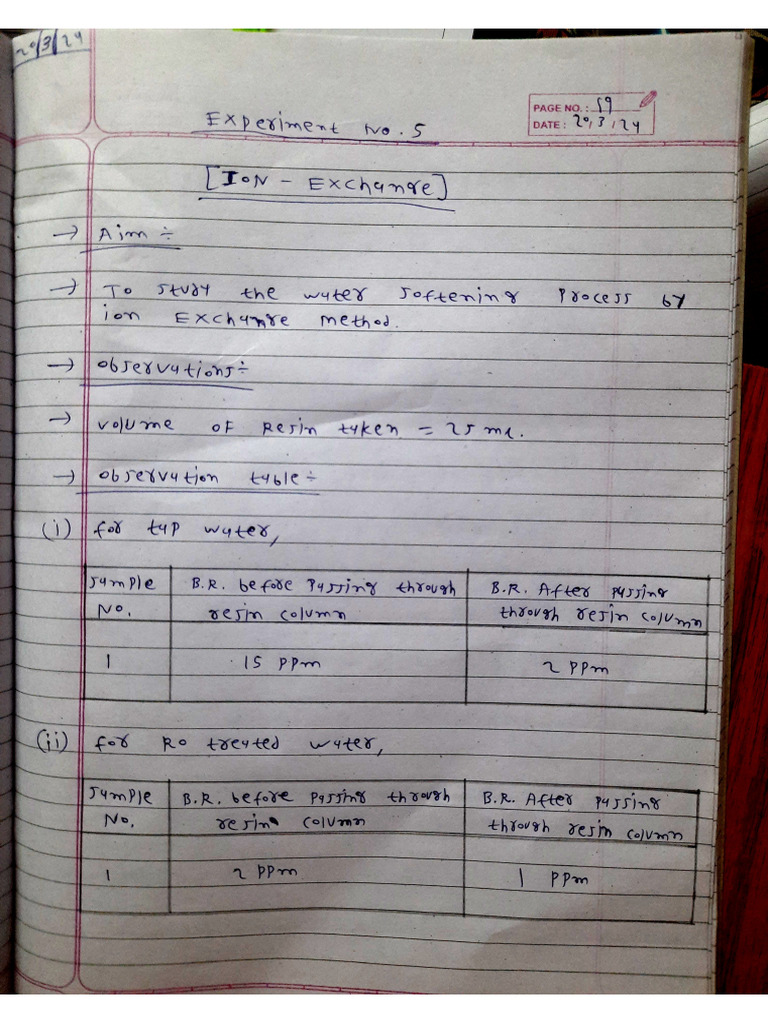 20/3/24
PAGE NO.: 59
DATE: 20/3/24
Experiment No. 5
[ION - Exchange]
→ Aim ÷
→ To study the water softening process by
ion Exchange method.
→ observations ÷
→ volume of Resin taken = 25 ml.
→ observation table ÷
(i) for tap water,
Sample No. B.R. before passing through resin column B.R. After passing through resin column
1 15 PPm 2 PPm
(ii) for RO treated water,
Sample No. B.R. before passing through resin column B.R. After passing through resin column
1 2 PPm 1 PPm